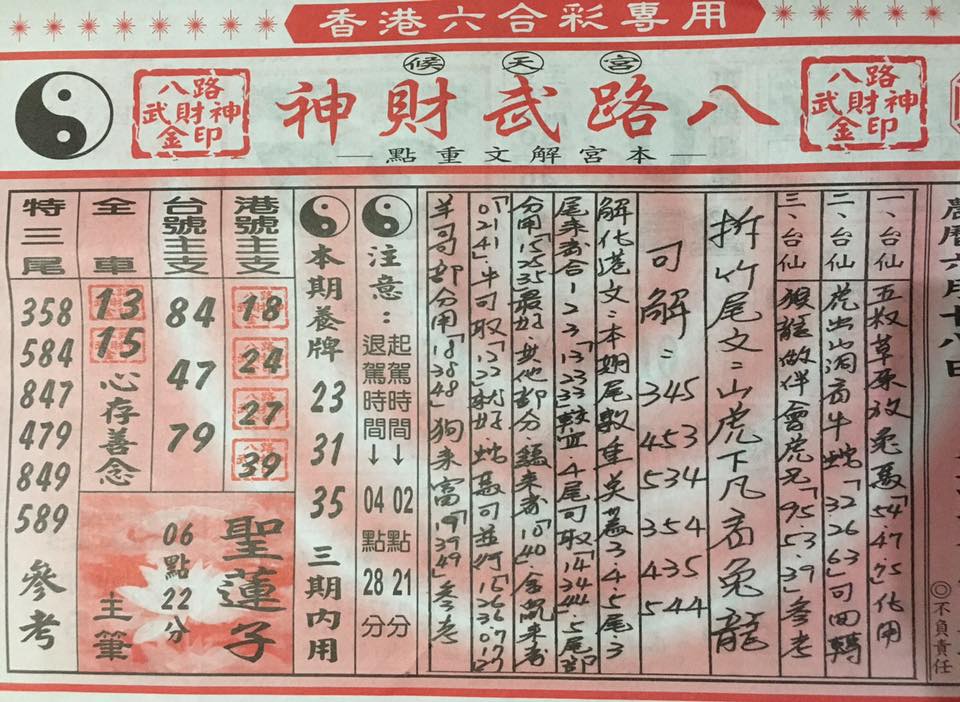 香港六合彩專用
八路武財神
宮天候
本宮解文重點
八路
武財神
金印
八路
武財神
金印
農曆六月十八日
◎不負責任
一、台仙 五杈草原放兔馬「54.47.75」化用
二、台仙 虎出山洞高牛蛇「32 26 63」可回轉
三、台仙 猴龍做伴會虎兄「95.53.39」參考
拆竹尾文:山虎下凡高兔龍
可解:345 453 534 354 435 544
解化港文:本期尾數重
尾來
合123「13 23 33」
4尾可取「14 34 44」5尾部
分用「15 25 35」最好.其他部分.
來
「10 40」
「02 41」牛可取
就好.蛇
可並行「16 26 36 07 17
羊哥哥部分用「18 38 48」狗來富「19 39 49」參考
注意:
起駕時間↓02點21分
退駕時間↓04點28分
本期養牌 23 31 35 三期內用
港號主支
18
24
27
39
台號主支
84
47
79
全車
13
15
心存善念
特三尾
358
584
847
479
849
589
參考
聖蓮子
06點22分
主筆